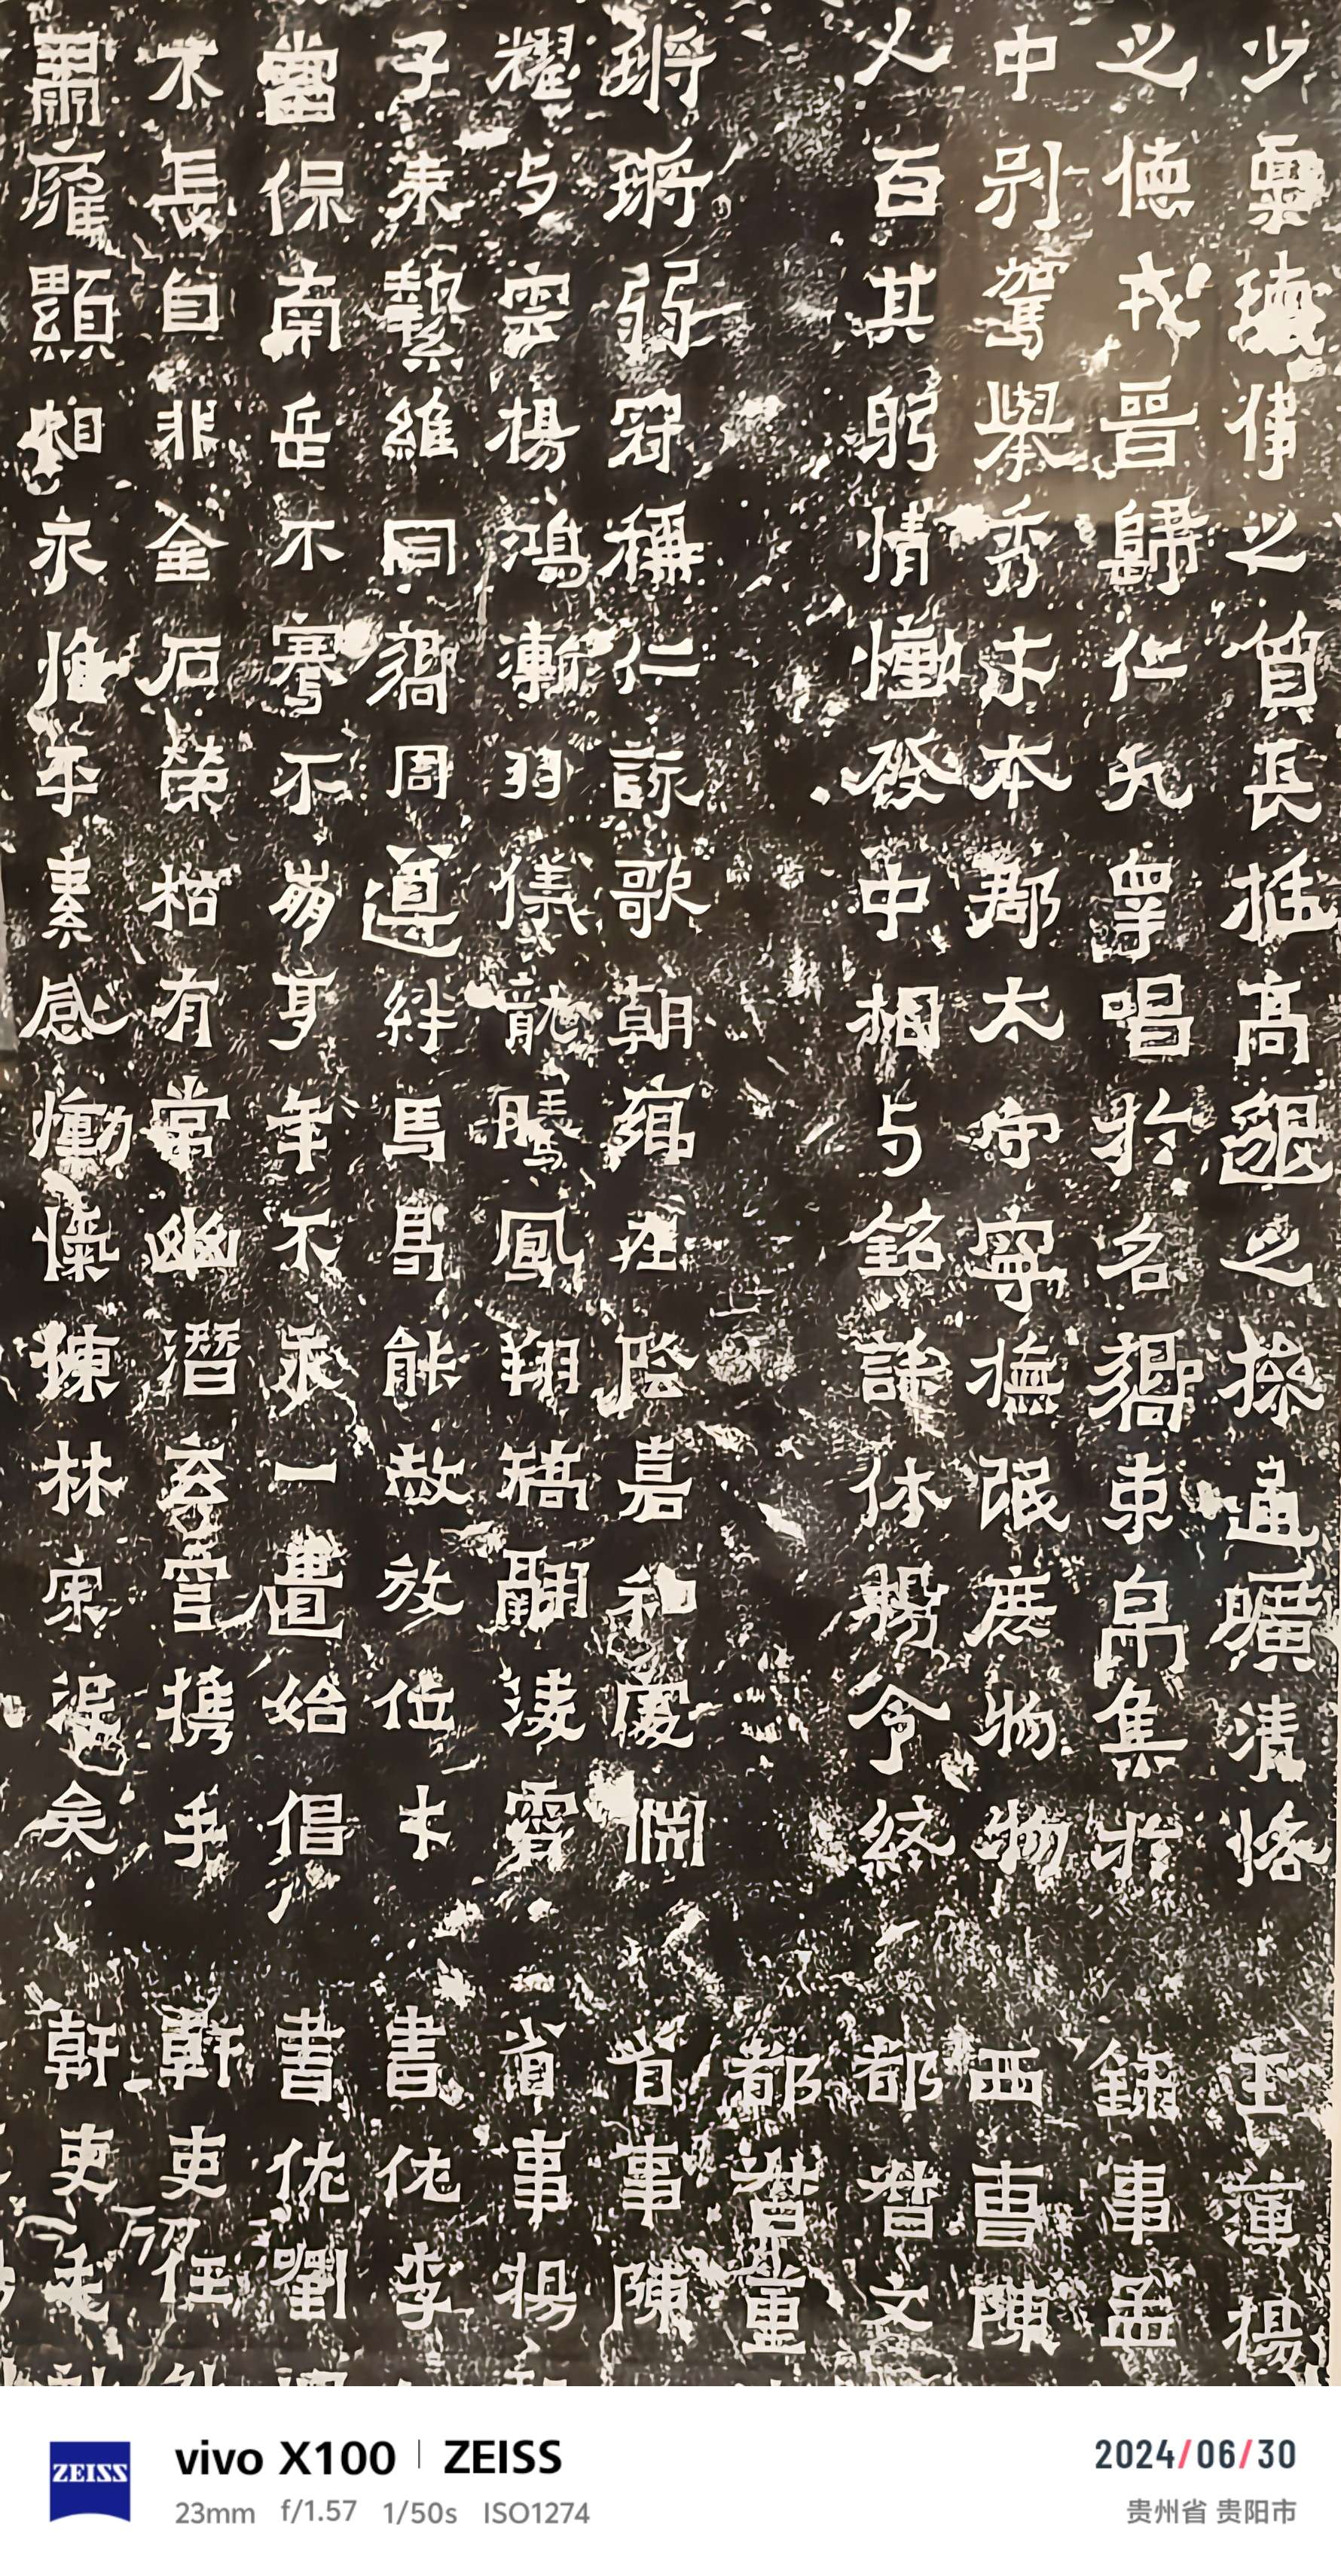 少稟瓌偉之質長挺高邈之操通曠清恪
之德戎晉歸仁九皋唱於名嚮束帛集於
中別駕舉秀才本郡太守寧撫氓庶物物
人百其躬情慟發中相与銘誄休揚令終
鏘鏘弱冠稱仁詠歌朝鄉在陰嘉和處淵
耀与雲揚鴻漸羽儀龍騰鳳翔矯翮淩霄
子來縶維同嚮周遵絆馬曷能赦放位才
當保南岳不騫不崩享年不永一匱始倡
不長自非金石榮枯有常幽潛玄穹携手
肅雍顯相永惟平素感慟懍悚林宗沒矣
主簿楊
錄事孟
西曹陳
都督文
都督董
省事陳
省事楊
書佐李
書佐劉
幹吏任
幹吏毛
ZEISS
vivo X100 | ZEISS
23mm f/1.57 1/50s ISO1274
2024/06/30
贵州省 贵阳市